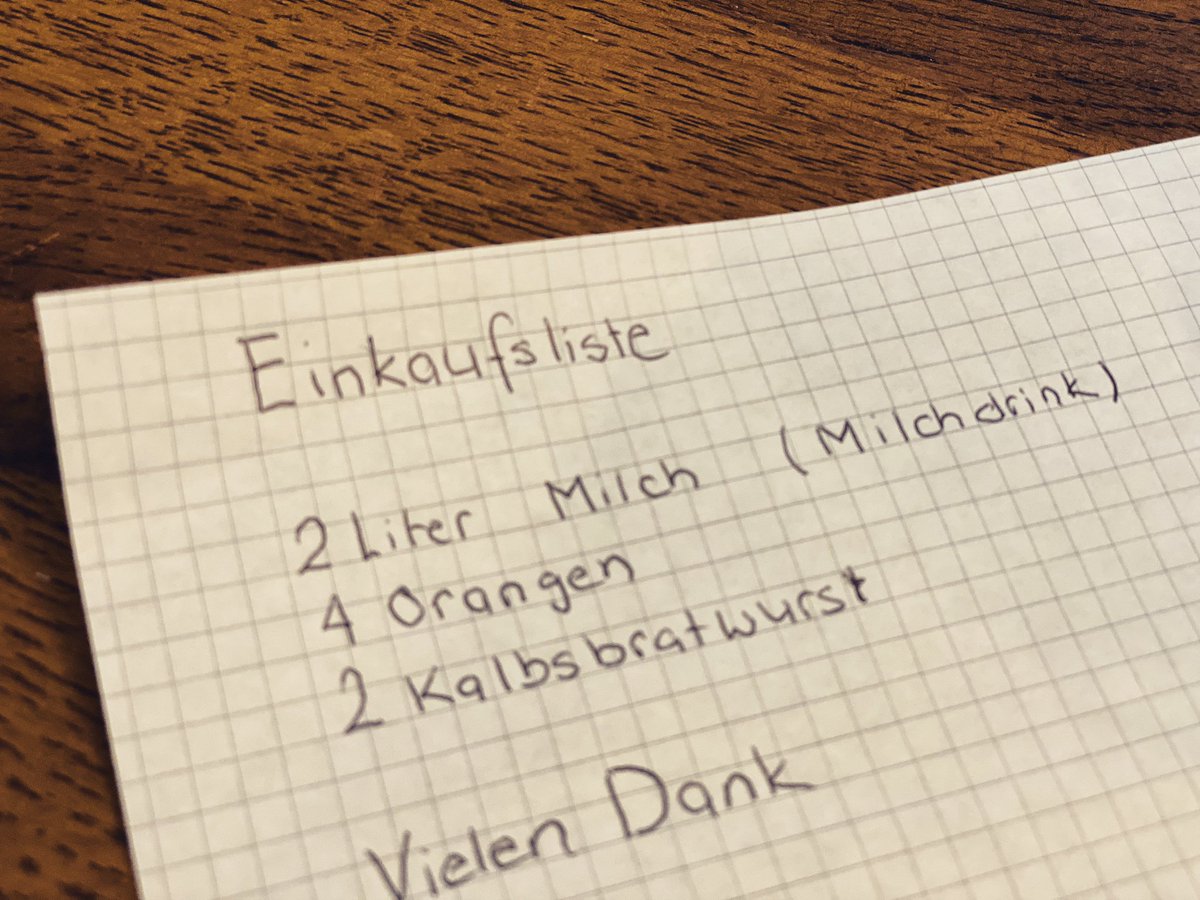 Einkaufsliste
2 Liter Milch (Milchdrink)
4 Orangen
2 Kalbsbratwurst
Vielen Dank